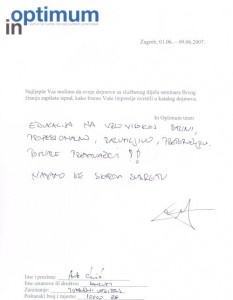 in optimum
Zagreb, 01.06. – 09.06.2007.
Najljepše Vas molimo da svoje dojmove sa službenog dijela seminara Brzog
čitanja zapišete ispod, kako bismo Vaše impresije uvrstili u katalog dojmova.
In Optimum team
EDUKACIJA NA VRLO VISOKOJ RAZINI,
PROFESIONALNO, ZANIMLJIVO,
!!
NADAMO SE SKOROM SUSRETU
Ime i prezime:
Ime ustanove ili društva:
Zanimanje:
Poštanski broj i mjesto: 10000